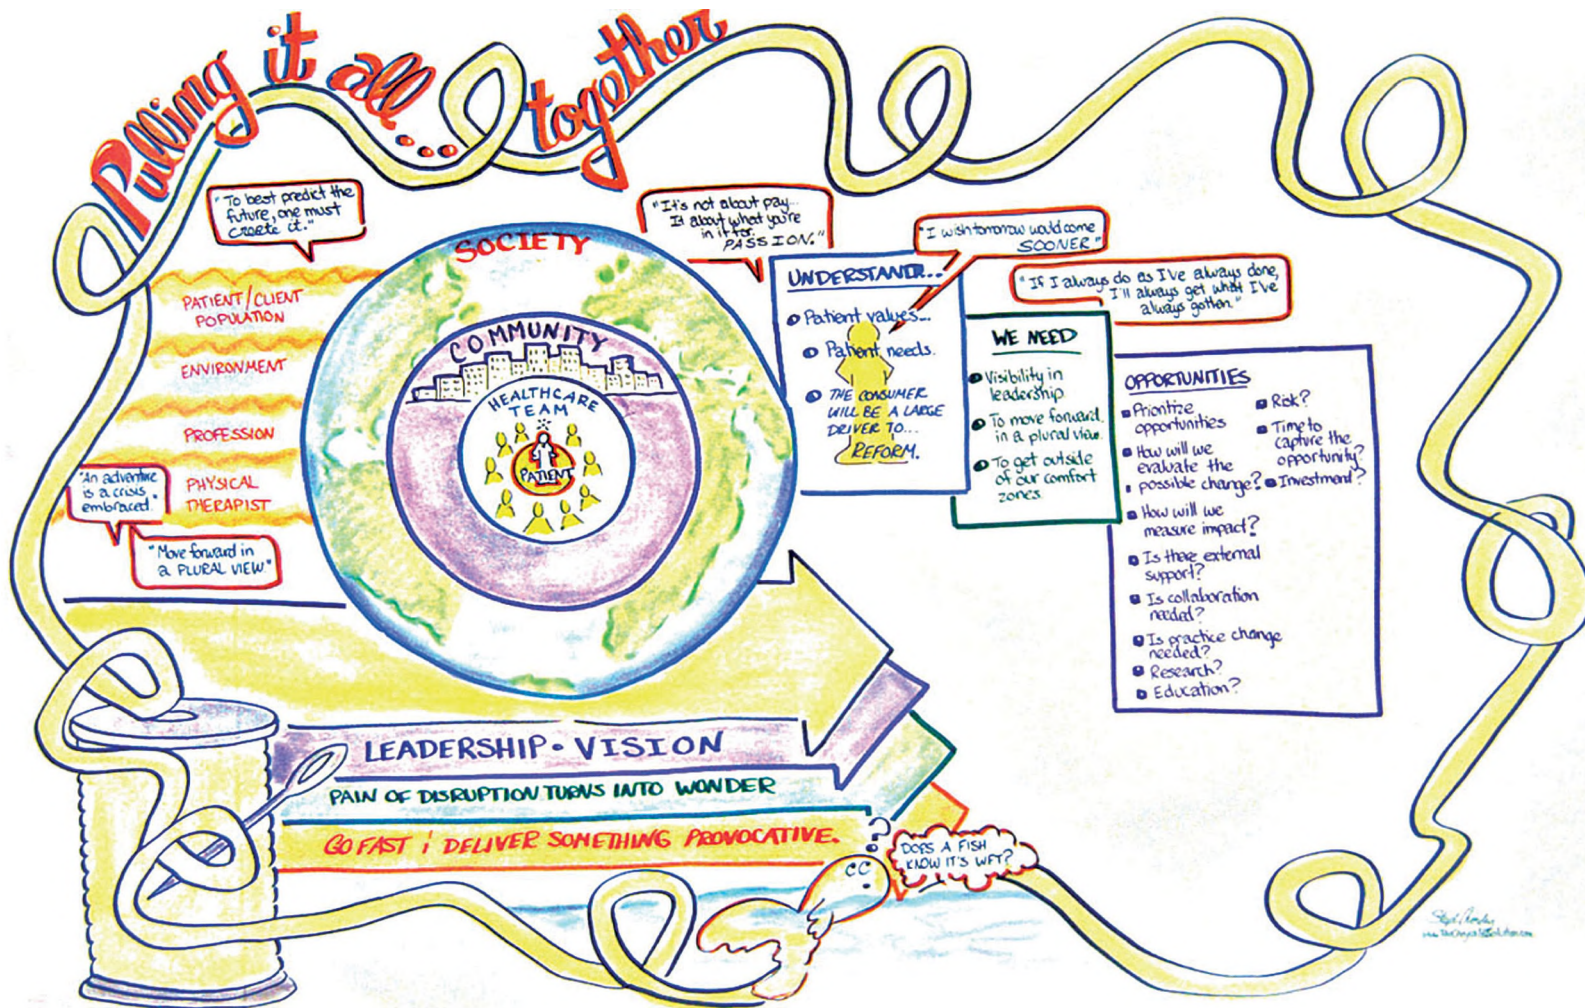 Pulling it all... together
"To best predict the
future, one must
create it."
PATIENT/CLIENT
POPULATION
ENVIRONMENT
PROFESSION
PHYSICAL
THERAPIST
"An adventure
is a crisis
embraced."
"Move forward in
a PLURAL VIEW"
SOCIETY
COMMUNITY
HEALTHCARE
TEAM
PATIENT
"It's not about pay...
It about what you're
in it for.
PASSION."
"I wish tomorrow would come
SOONER"
"If I always do as I've always done,
I'll always get what I've
always gotten."
UNDERSTAND...
Patient values...
Patient needs.
THE CONSUMER
WILL BE A LARGE
DRIVER TO...
REFORM.
WE NEED
Visibility in
leadership
To move forward
in a plural view.
To get outside
of our comfort
zones.
OPPORTUNITIES
Prioritize
opportunities
How will we
evaluate the
possible change?
How will we
measure impact?
Is there external
support?
Is collaboration
needed?
Is practice change
needed?
Research?
Education?
Risk?
Time to
capture the
opportunity?
Investment?
LEADERSHIP • VISION
PAIN OF DISRUPTION TURNS INTO WONDER
GO FAST ; DELIVER SOMETHING PROVOCATIVE.
? CC
DOES A FISH
KNOW IT'S WET?